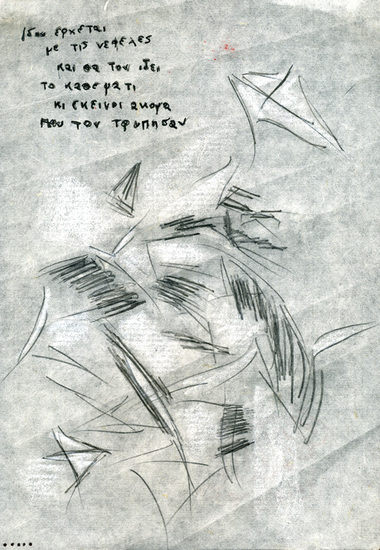 Ιδου ερχεται
με τις νεφελες
και θα τον ιδει
το καθε ματι
κι εκεινοι ακομα
που τον τρυπησαν